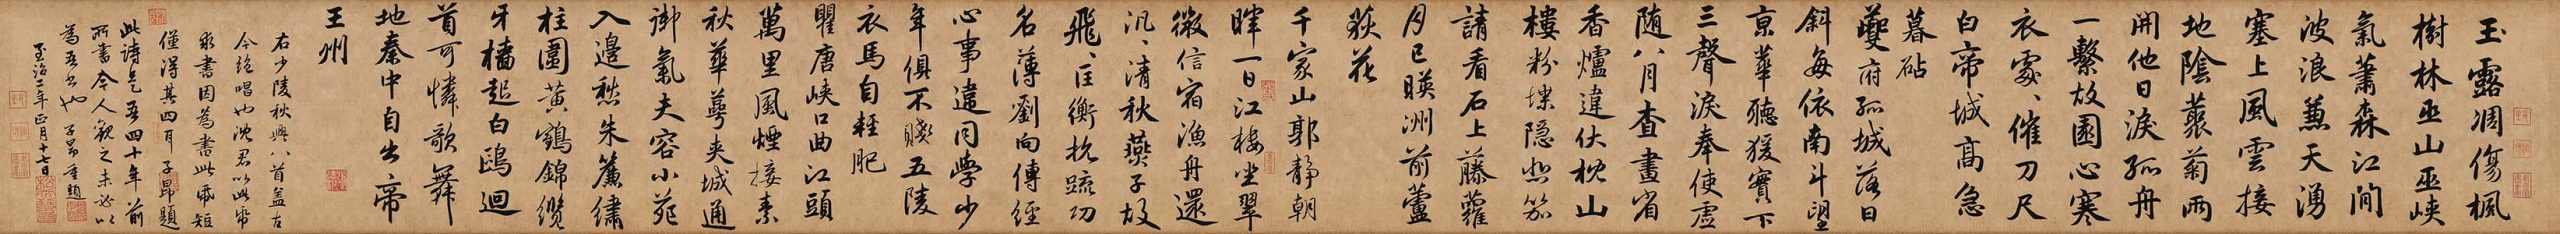 玉露凋傷楓
樹林巫山巫峽
氣蕭森江間
波浪蒹天湧
塞上風雲接
地陰藂菊兩
開他日淚孤舟
一繫故園心寒
衣處、催刀尺
白帝城高急
暮砧
夔府孤城落日
斜每依南斗望
京華聽猨實下
三聲淚奉使虛
隨八月查畫省
香爐違伏枕山
樓粉堞隱悲笳
請看石上藤蘿
月已暎洲前蘆
荻花
千家山郭靜朝
暉一日江樓坐翠
微信宿漁舟還
汎、清秋燕子故
飛、匡衡抗疏功
名薄劉向傳經
心事違同學少
年俱不賤五陵
衣馬自輕肥
瞿唐峽口曲江頭
萬里風煙接素
秋華萼夾城通
御氣夫容小苑
入邊愁朱簾繡
柱圍黃鶴錦纜
牙檣起白鷗迴
首可憐歌舞
地秦中自古、帝
王州
右少陵秋興八首蓋古
今絕唱也沈君以此帋
求書因為書此帋短
僅得其四耳 子昂題
此詩是吾四十年前
所書今人觀之未必以
為吾書也 子昂重題
至治二年正月十七日